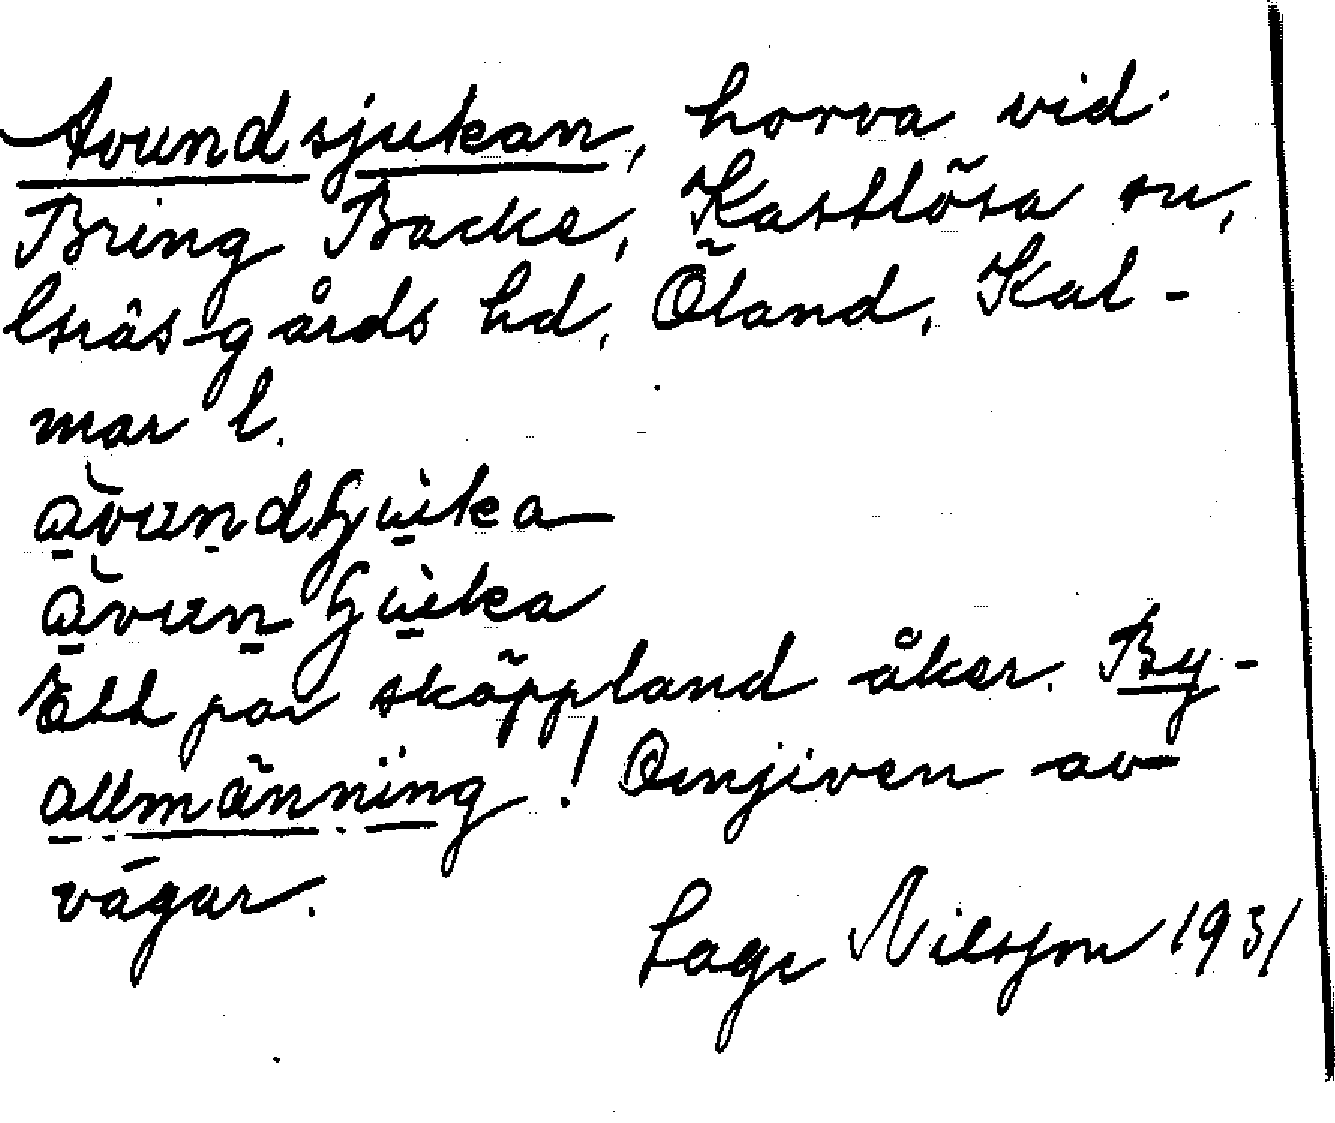 Avundsjukan, horva vid
Bring Backe, Kastlösa sn,
Gräsgårds hd, Öland, Kal-
mar l.
Ett par skäppland åker. By-
allmänning! Omgiven av
vägar.
Lage Nilsson 1931